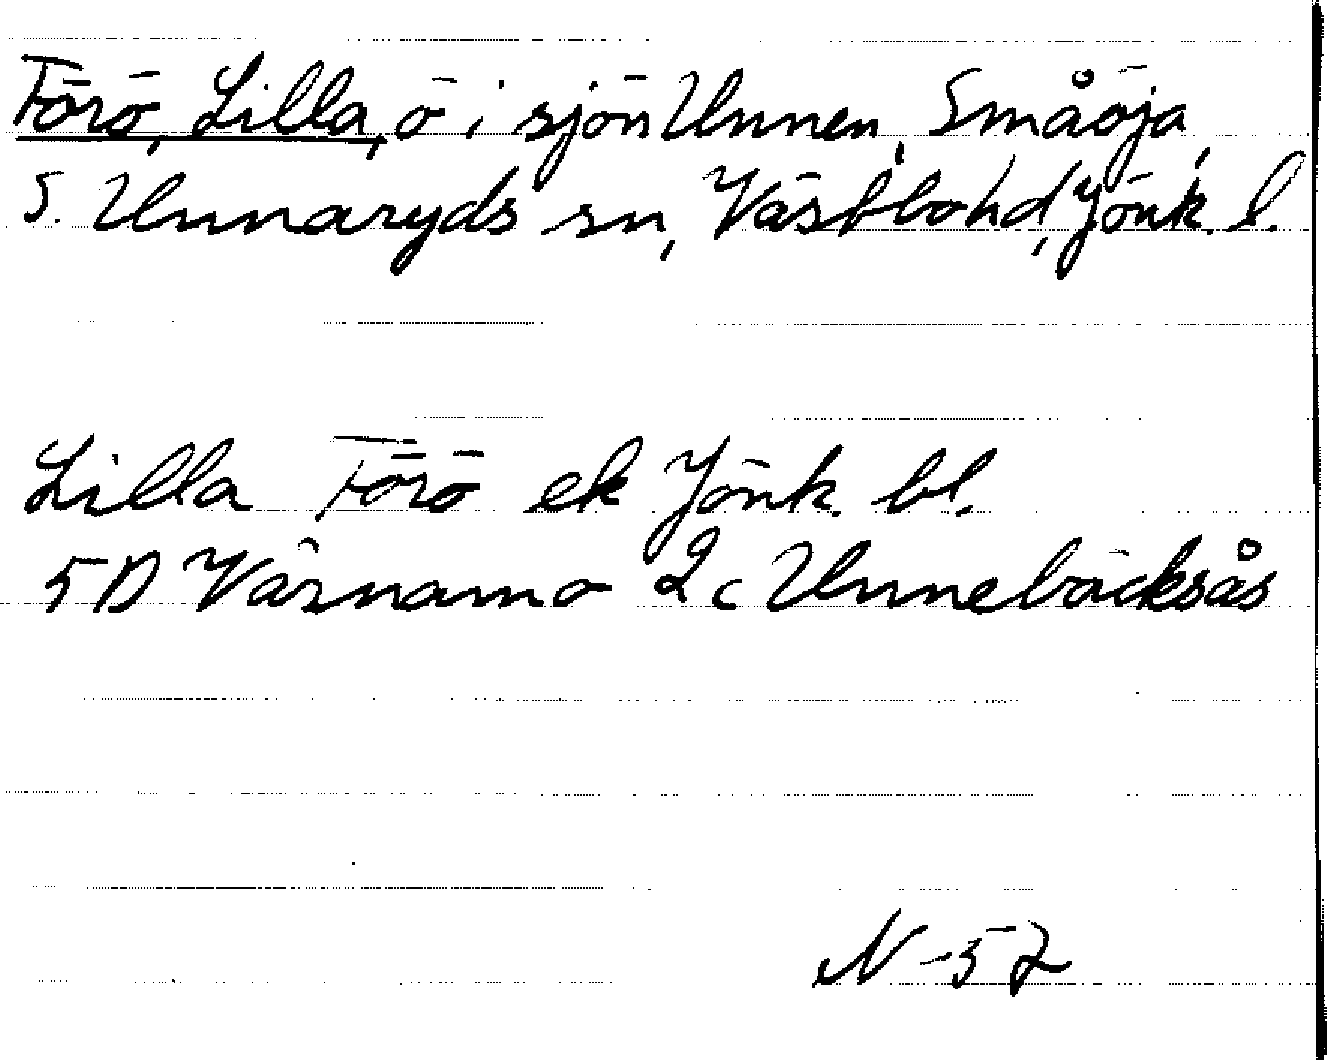 Förö, Lilla, ö i sjön Unnen, Småöja,
S. Unnaryds sn, Västbo hd, Jönk. l.
Lilla Förö ek Jönk. bl.
5D Värnamo 2c Unnebäcksås
N -57